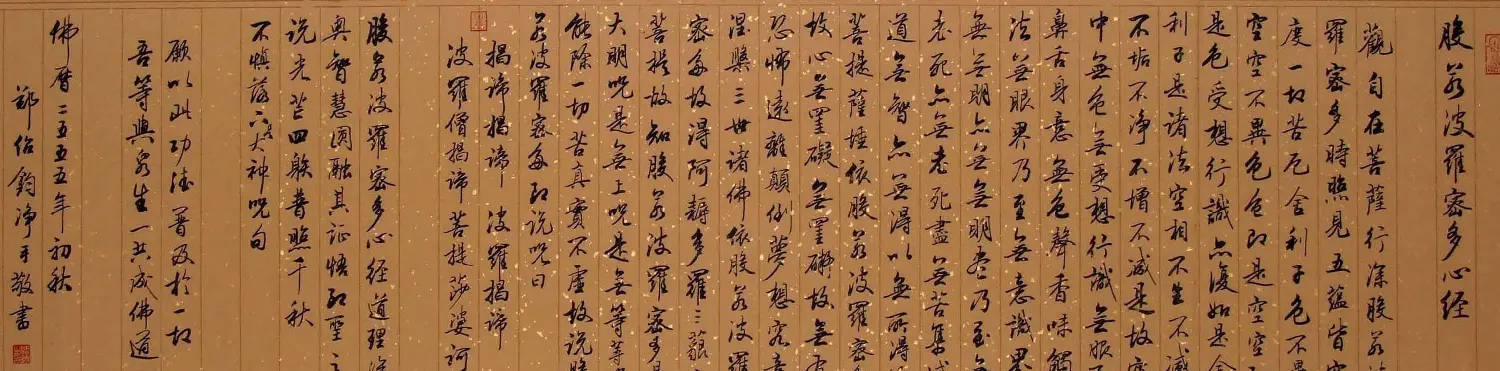 般若波羅密多心经
觀自在菩薩行深般若波
羅密多時照見五蕴皆空
度一切苦厄舍利子色不異
空空不異色色即是空空
是色受想行識亦復如是舍
利子是诸法空相不生不滅
不垢不净不增不减是故空
中無色無受想行識無眼
鼻舌身意無色聲香味觸
法無眼界乃至無意識界
無無明亦無無明盡乃至無
老死亦無老死盡無苦集滅
道無智亦無得以無所得
菩提薩埵依般若波羅密
故心無罣礙無罣礙故無有
恐怖遠離顛倒夢想究竟
涅槃三世诸佛依般若波羅
密多故得阿耨多羅三藐
菩提故知般若波羅密多是
大明咒是無上咒是無等等
能除一切苦真實不虚故说般
若波羅密多即说咒曰
揭谛揭谛 波羅揭谛
波羅僧揭谛菩提莎婆訶
般若波羅密多心经道理深
奥智慧圆融其证悟聖
说光芒四躲普照千秋
不慎落六大神咒句
願以此功德普及於一切
吾等與眾生一共成佛道
佛曆二五五五年初秋
鄭伯鈞净手敬書